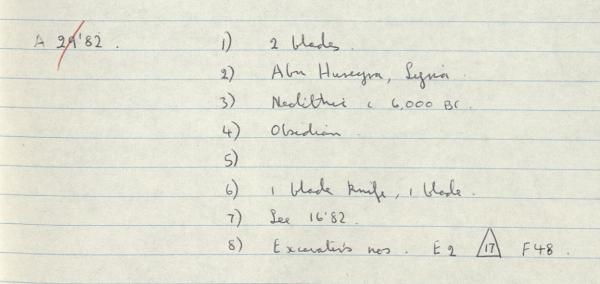 A 29'82. 1) 2 blades.
2) Abu Hureyra, Syria.
3) Neolithic c 6,000 BC.
4) Obsidian.
5)
6) 1 blade knife, 1 blade.
7) See 16'82.
8) Excavation nos. E2 17 F48.